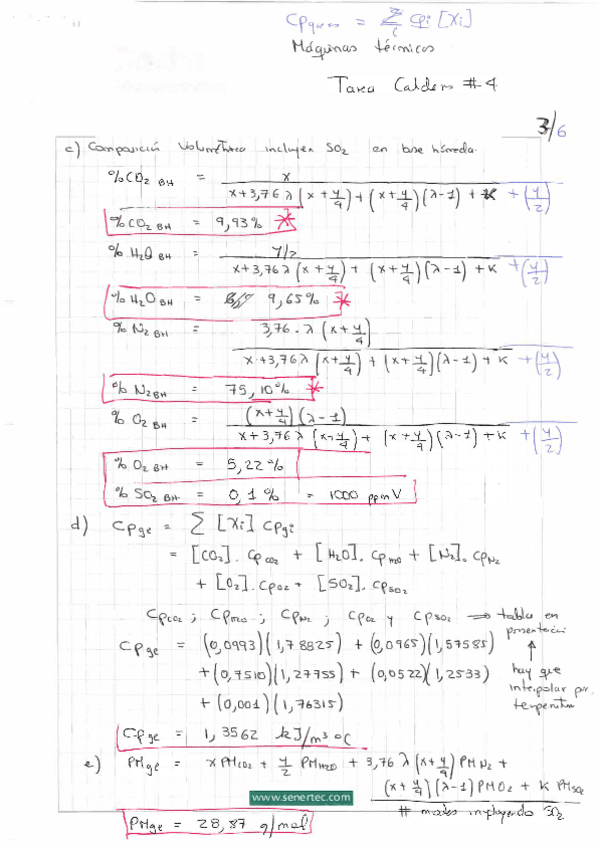 Cpgases = Σ Cpi [Xi]
i
Máquinas técnicos
Tarea Caldera #4
3/6
c) Composición volumétrica incluyen SO₂ en base húmeda.
%CO₂ BH = x / (x+3,76λ(x+y/4)+(x+y/4)(λ-1)+K+(y/2))
%CO₂ BH = 9,93% *
%H₂O BH = y/2 / (x+3,76λ(x+y/4)+(x+y/4)(λ-1)+K+(y/2))
%H₂O BH = 9,65% *
%N₂ BH = 3,76·λ(x+y/4) / (x+3,76λ(x+y/4)+(x+y/4)(λ-1)+K+(y/2))
%N₂ BH = 75,10% *
%O₂ BH = (x+y/4)(λ-1) / (x+3,76λ(x+y/4)+(x+y/4)(λ-1)+K+(y/2))
%O₂ BH = 5,22%
%SO₂ BH = 0,1% = 1000 ppmV
d) Cpge = Σ [Xi] Cpgi
= [CO₂]. CpCO₂ + [H₂O]. CpH₂O + [N₂]. CpN₂
+ [O₂]. CpO₂ + [SO₂]. CpSO₂
CpCO₂ ; CpH₂O ; CpN₂ ; CpO₂ y CpSO₂ ⇒ tabla en
presentación
↑
hay que
interpolar por
temperatura
Cpge = (0,0993)(1,78825) + (0,0965)(1,57585)
+(0,7510)(1,27755) + (0,0522)(1,2533)
+ (0,001)(1,76315)
Cpge = 1,3562 kJ/m³ °C
e) PMge = x PMCO₂ + y/2 PMH₂O + 3,76 λ(x+y/4) PMN₂ +
(x+y/4)(λ-1) PMO₂ + K PMSO₂
# moles incluyendo SO₂
www.senertec.com
PMge = 28,87 g/mol